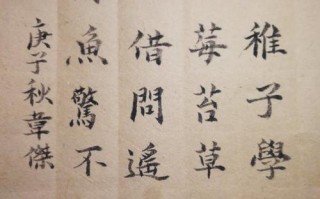 稚子學
莓苔草
借問遙
魚驚不
庚子秋韋傑